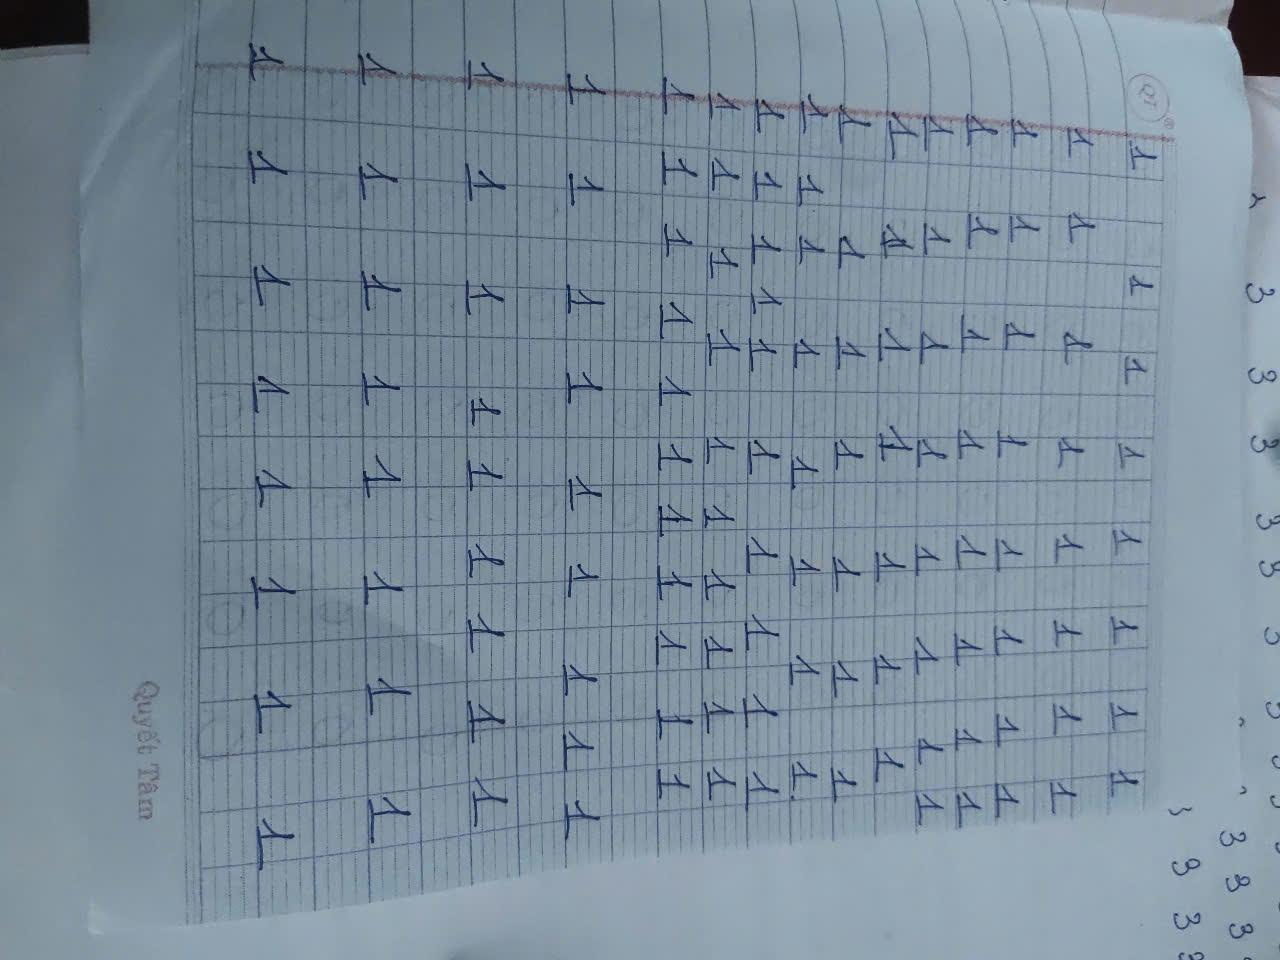 QT
1 1 1 1 1 1 1 1
1 1 1 1 1 1 1 1
1 1 1 1 1 1 1 1
1 1 1 1 1 1 1 1
1 1 1 1 1 1 1 1
1 1 1 1 1 1 1
1 1 1 1 1 1 1
1 1 1 1 1 1 1 1
1 1 1 1 1 1 1 1 1 1
1 1 1 1 1 1 1 1 1 1
1 1 1 1 1 1 1 1 1 1 1
1 1 1 1 1 1 1 1 1
1 1 1 1 1 1 1 1 1
1 1 1 1 1 1 1 1
1 1 1 1 1 1 1 1
Quyết Tâm
3 3 3 3 3
3 3 3
3 3 3